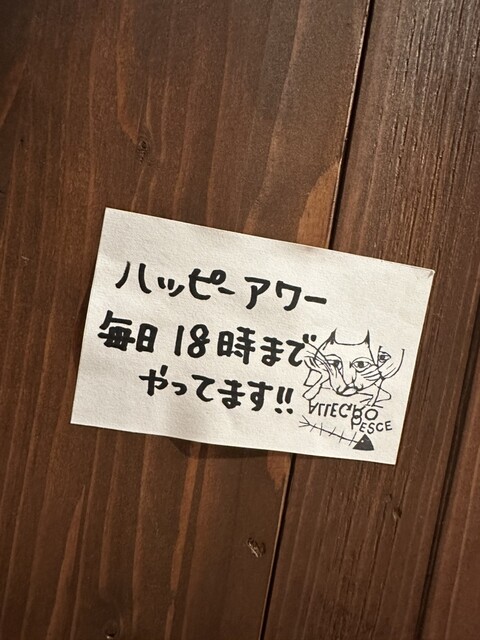 ハッピーアワー
毎日18時まで
やってます!!
ALLEGRO
PESCE